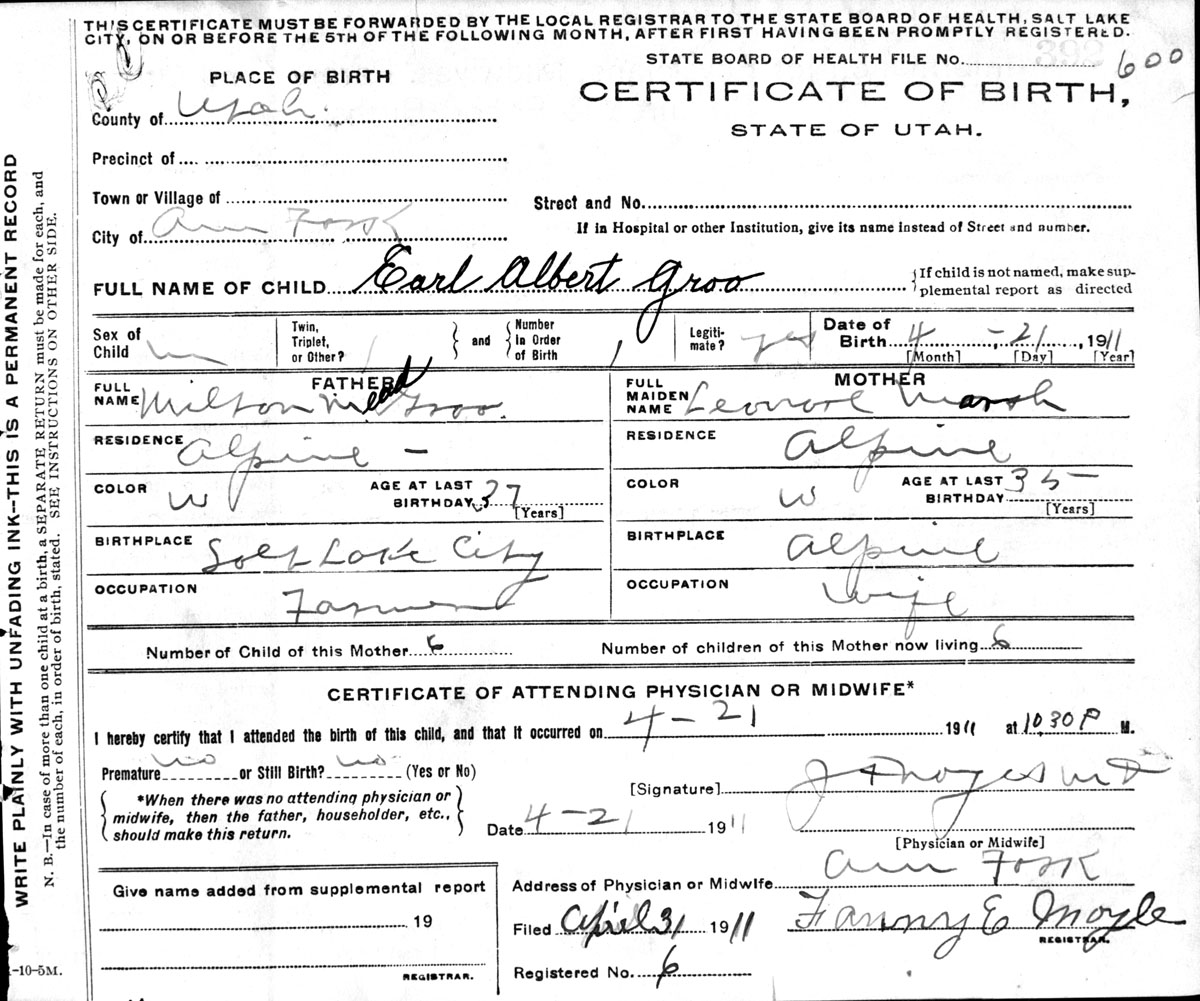 THIS CERTIFICATE MUST BE FORWARDED BY THE LOCAL REGISTRAR TO THE STATE BOARD OF HEALTH, SALT LAKE
CITY, ON OR BEFORE THE 5TH OF THE FOLLOWING MONTH, AFTER FIRST HAVING BEEN PROMPTLY REGISTERED.
STATE BOARD OF HEALTH FILE No. 600
PLACE OF BIRTH
CERTIFICATE OF BIRTH,
STATE OF UTAH.
County of Utah.
Precinct of
Town or Village of
Street and No.
City of Am Fork
If in Hospital or other Institution, give its name instead of Street and number.
FULL NAME OF CHILD Earl Albert Groo
{If child is not named, make sup-
plemental report as directed
Sex of Child m
Twin, Triplet, or Other?
} and { Number In Order of Birth 1
Legiti-mate? yes
Date of Birth 4 - 21, 1911
[Month] [Day] [Year]
FATHER
FULL NAME Milton Mead Groo.
RESIDENCE Alpine -
COLOR W AGE AT LAST BIRTHDAY 37
[Years]
BIRTHPLACE Salt Lake City
OCCUPATION Farmer
MOTHER
FULL MAIDEN NAME Leonore Marsh
RESIDENCE Alpine
COLOR W AGE AT LAST BIRTHDAY 35
[Years]
BIRTHPLACE Alpine
OCCUPATION Wife
Number of Child of this Mother 6 Number of children of this Mother now living 6
CERTIFICATE OF ATTENDING PHYSICIAN OR MIDWIFE*
I hereby certify that I attended the birth of this child, and that it occurred on 4 - 21 1911 at 10.30 P M.
Premature no or Still Birth? no (Yes or No)
{ *When there was no attending physician or
midwife, then the father, householder, etc.,
should make this return. }
[Signature]
Date 4-21 1911
[Physician or Midwife]
Address of Physician or Midwife Am Fork
Give name added from supplemental report
19
REGISTRAR.
Filed April 1911 Fanny E Moyle
REGISTRAR.
Registered No. 6
-10-5M.
WRITE PLAINLY WITH UNFADING INK--THIS IS A PERMANENT RECORD
N. B.—In case of more than one child at a birth, a SEPARATE RETURN must be made for each, and
the number of each, in order of birth, stated. SEE INSTRUCTIONS ON OTHER SIDE.